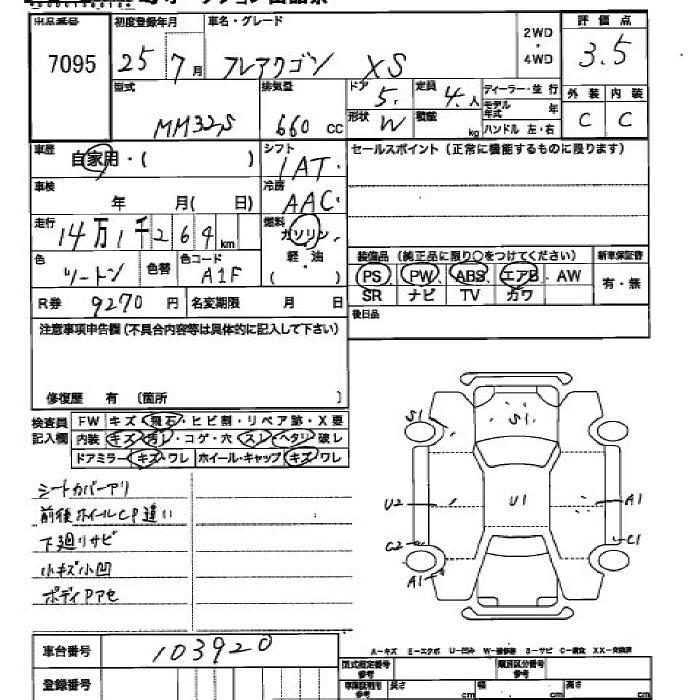 出品番号 初度登録年月 車名・グレード 2WD・4WD 評価点
7095 25年7月 フレアワゴン XS 3.5
型式 排気量 ドア 5. 定員 4.人 ディーラー・並行 外装 内装
MM32S 660 cc 形状 W 積載 kg モデル年式 年 C C
ハンドル 左・右
車歴 自家用・( ) シフト 1AT. セールスポイント(正常に機能するものに限ります)
車検 年 月( 日) 冷房 AAC.
走行 14万1千264km 燃料 ガソリン
色 ツートン 色替 色コード A1F 軽・油 ( )
装備品(純正品に限り○をつけてください) 新車保証書
PS、PW、ABS、エアB、AW 有・無
SR ナビ TV カワ
R券 9270円 名変期限 月 日
後日品
注意事項申告欄(不具合内容等は具体的に記入して下さい)
修復歴 有〔箇所 〕
検査員記入欄 FW キズ・飛石・ヒビ割・リペア跡・X要
内装 キズ・汚レ・コゲ・穴・スレ・ヘタリ・破レ
ドアミラー キズ・ワレ ホイール・キャップ キズ・ワレ
シートカバーアリ
前後ホイールCP違い
下廻リサビ
小キズ小凹
ボディPアセ
S1 S1
U2 U1 A1
C2 C1
A1
車台番号 103920
A-キズ E-エクボ U-凹み W-補修跡 S-サビ C-腐食 XX-交換済
型式指定番号 参考 類別区分番号 参考
登録番号 長さ cm 幅 cm 高さ cm